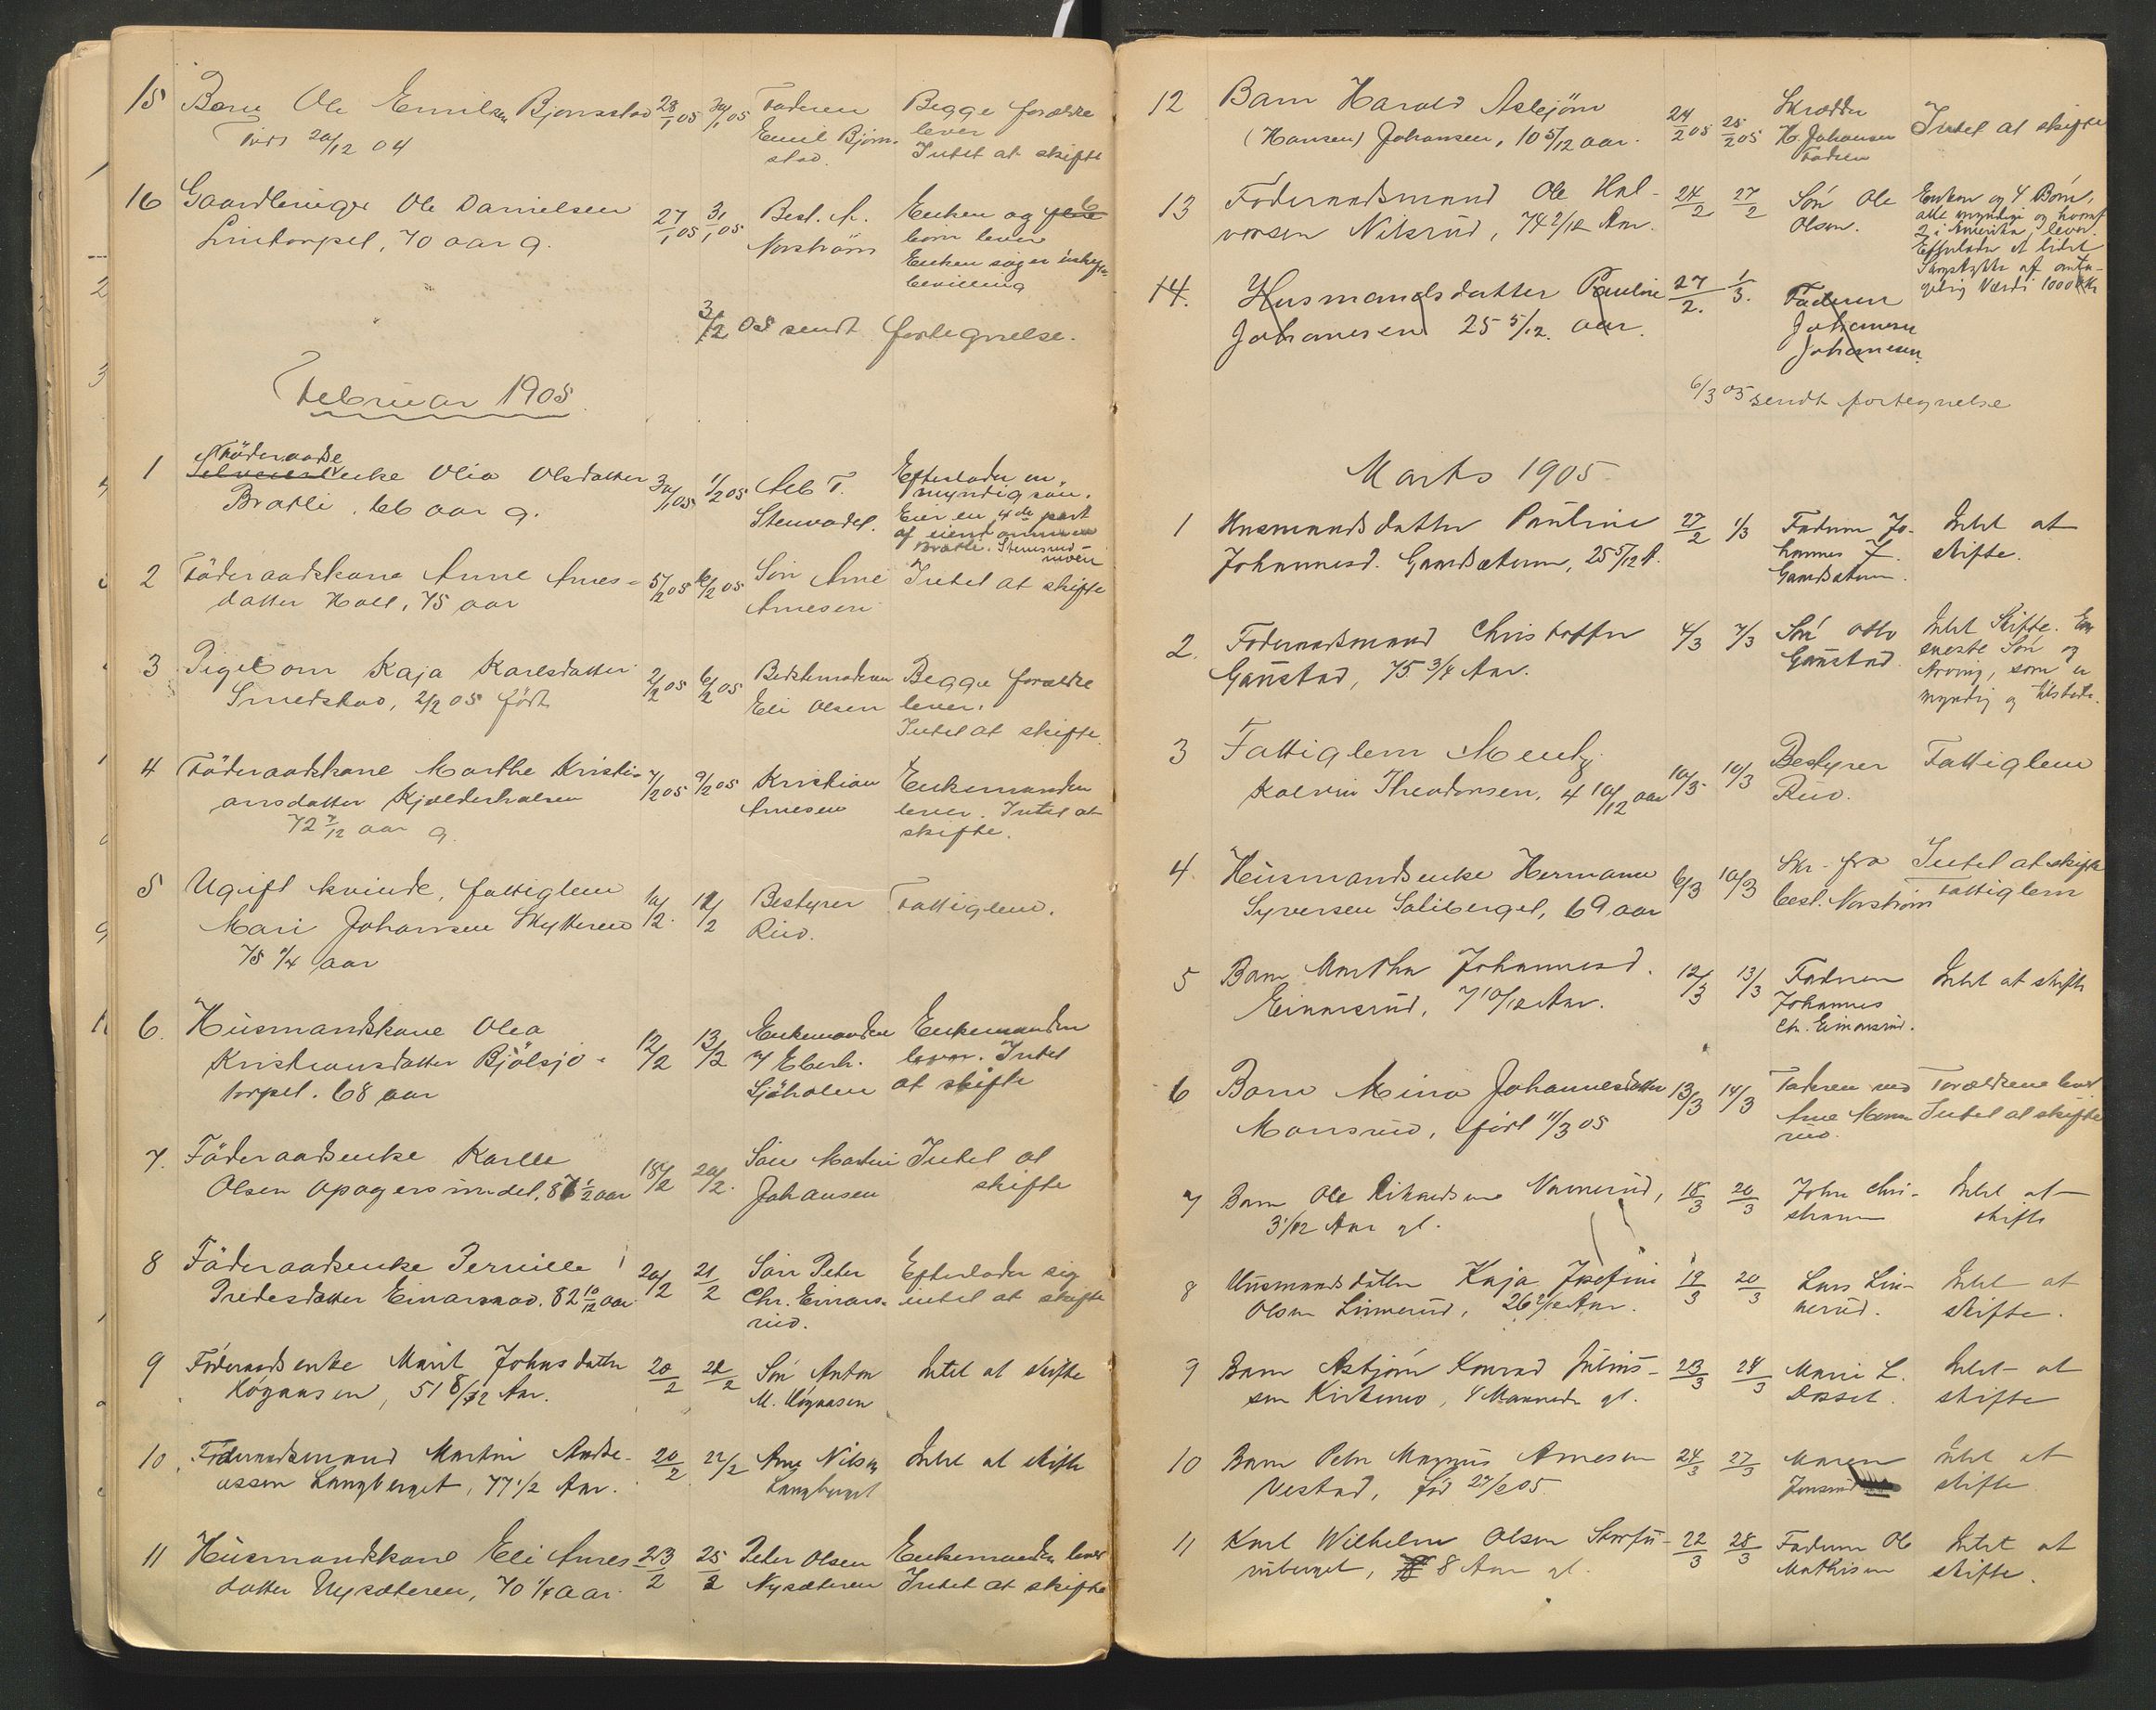 15 Barn Ole Emilsen Bjørnstad 28/1 05 30/1 05 Faderen Begge forældre
Född 20/12 04 Emil Bjørn- lever
stad. Intet at skifte
16 Gaardbruger Ole Danielsen 27/1 05 31/1 05 Best. A. Enken og 6
Lintorpet, 70 aar g. Norström børn lever
Enken søger uskifte-
bevilling
3/2 05 sendt fortegnelse.
Februar 1905
1 Föderaads enke Olia Olsdatter 30/1 05 1/2 05 Alb T. Efterlader en
Bratli, 66 aar g. Stenvadet. myndig søn.
Eier en 4de part
af eiendommen
Bratli. Stensrud-
moen
2 Föderaadskone Anne Arnes- 5/2 05 6/2 05 Søn Arne Intet at skifte
datter Holl, 75 aar Arnesen
3 Pigebarn Kaja Karlsdatter 2/2 05 6/2 05 Bedstemoderen Begge forældre
Smedstad, 2/2 05 født Eli Olsen lever.
Intet at skifte.
4 Föderaadskone Marthe Kristi- 7/2 05 9/2 05 Kristian Enkemanden
ansdatter Kjølderhalsen Arnesen lever. Intet at
72 7/12 aar g. skifte.
5 Ugift kvinde, fattiglem 10/2 12/2 Bestyrer Fattiglem.
Mari Johansen Skytteren Rud.
75 1/4 aar
6. Husmandskone Olea 12/2 13/2 Enkemanden Enkemanden
Kristiansdatter Bjölsjo- lever. Intet
torpet. 68 aar Sjöholen at skifte
7. Föderaadsenke Karen 18/2 20/2. Søn Martin Intet at
Olsen 87 1/2 aar Johansen skifte
8 Föderaadsenke Pernille 20/2 21/2 Søn Peter Efterlader sig
Predesdatter Einarsrud. 82 10/12 aar Chr. Einars- intet at skifte
rud.
9 Föderaadsenke Marit Johnsdatter 20/2 22/2 Søn Anton Intet at skifte
Høgaasen, 51 8/12 Aar. M. Høgaasen
10. Föderaadsmand Martin Andre- 20/2 22/2 Arne Nilsen Intet at skifte
assen Langberget, 77 1/2 Aar. Langberget
11 Husmandskone Eli Arnes- 23/2 25/2 Peter Olsen Enkemanden lever
datter Nysæteren, 70 1/4 aar. Nysæteren Intet at skifte
12 Barn Harald Asbjörn 24/2 05 25/2 05 Skrædder Intet at skifte
(Hansen) Johansen, 10 5/12 aar. H. Johansen
Faderen
13 Föderaadsmand Ole Hal- 24/2 27/2 Søn Ole Enken og 4 Børn,
vorsen Nilsrud, 74 2/12 Aar. Olsen. alle myndige og hvoraf
2 i Amerika, lever.
Efterlader et lidet
Skogstykke af anta-
gelig Værdi 1000 Kr
14. Husmandsdatter Pauline 27/2. 1/3. Faderen
Johannesen 25 5/12. aar. Johannes
Johannesen.
6/3 05 sendt fortegnelse
Marts 1905
1 Husmandsdatter Pauline 27/2 1/3 Faderen Jo- Intet at
Johannesd. Gaardsæteren, 25 5/12 A. hannes J. skifte.
Gaardsæteren.
2. Föderaadsmand Christoffer 4/3 7/3 Søn Otto Intet Skifte. En
Gaustad, 75 3/4 Aar. Gaustad eneste Søn og
Arving, som er
myndig og tilstede.
3 Fattiglem Mentz 10/3 10/3 Bestyrer Fattiglem
Kalvin Theodorsen, 4 10/12 aar Rud.
4. Husmandsenke Hermane 6/3 10/3 Skr. fra Intet at skifte
Syversen Soliberget, 69 aar best. Norström Fattiglem
5 Barn Martha Johannesd. 12/3 13/3 Faderen Intet at skifte
Einarsrud, 7 10/12 Aar. Johannes
Chr. Einarsrud.
6 Barn Mina Johannesdatter 13/3 14/3 Faderen ved Forældrene lever
Monsrud, født 11/3 05 Arne Mons- Intet at skifte
rud.
7 Barn Ole Rikardsen 18/3 20/3 John Chri- Intet at
3 1/12 Aar gl. skifte
8 Husmandsdatter Kaja Josefine 19/3 20/3 Lars Lin- Intet at
Olsen Linnerud, 26 2/12 Aar. nerud. skifte.
9 Barn Asbjørn Konrad Julius- 23/3 24/3 Marie L. Intet at
sen Kirkemo, 4 Maaneder gl. Dosset. skifte
10 Barn Peter Magnus Arnesen 24/3 27/3 Maren Intet at
Vestad, fød 27/2 05. Jonsrud skifte
11 Karl Wilhelm Olsen 22/3 28/3 Faderen Ole Intet at
8 Aar gl. Mathisen skifte.